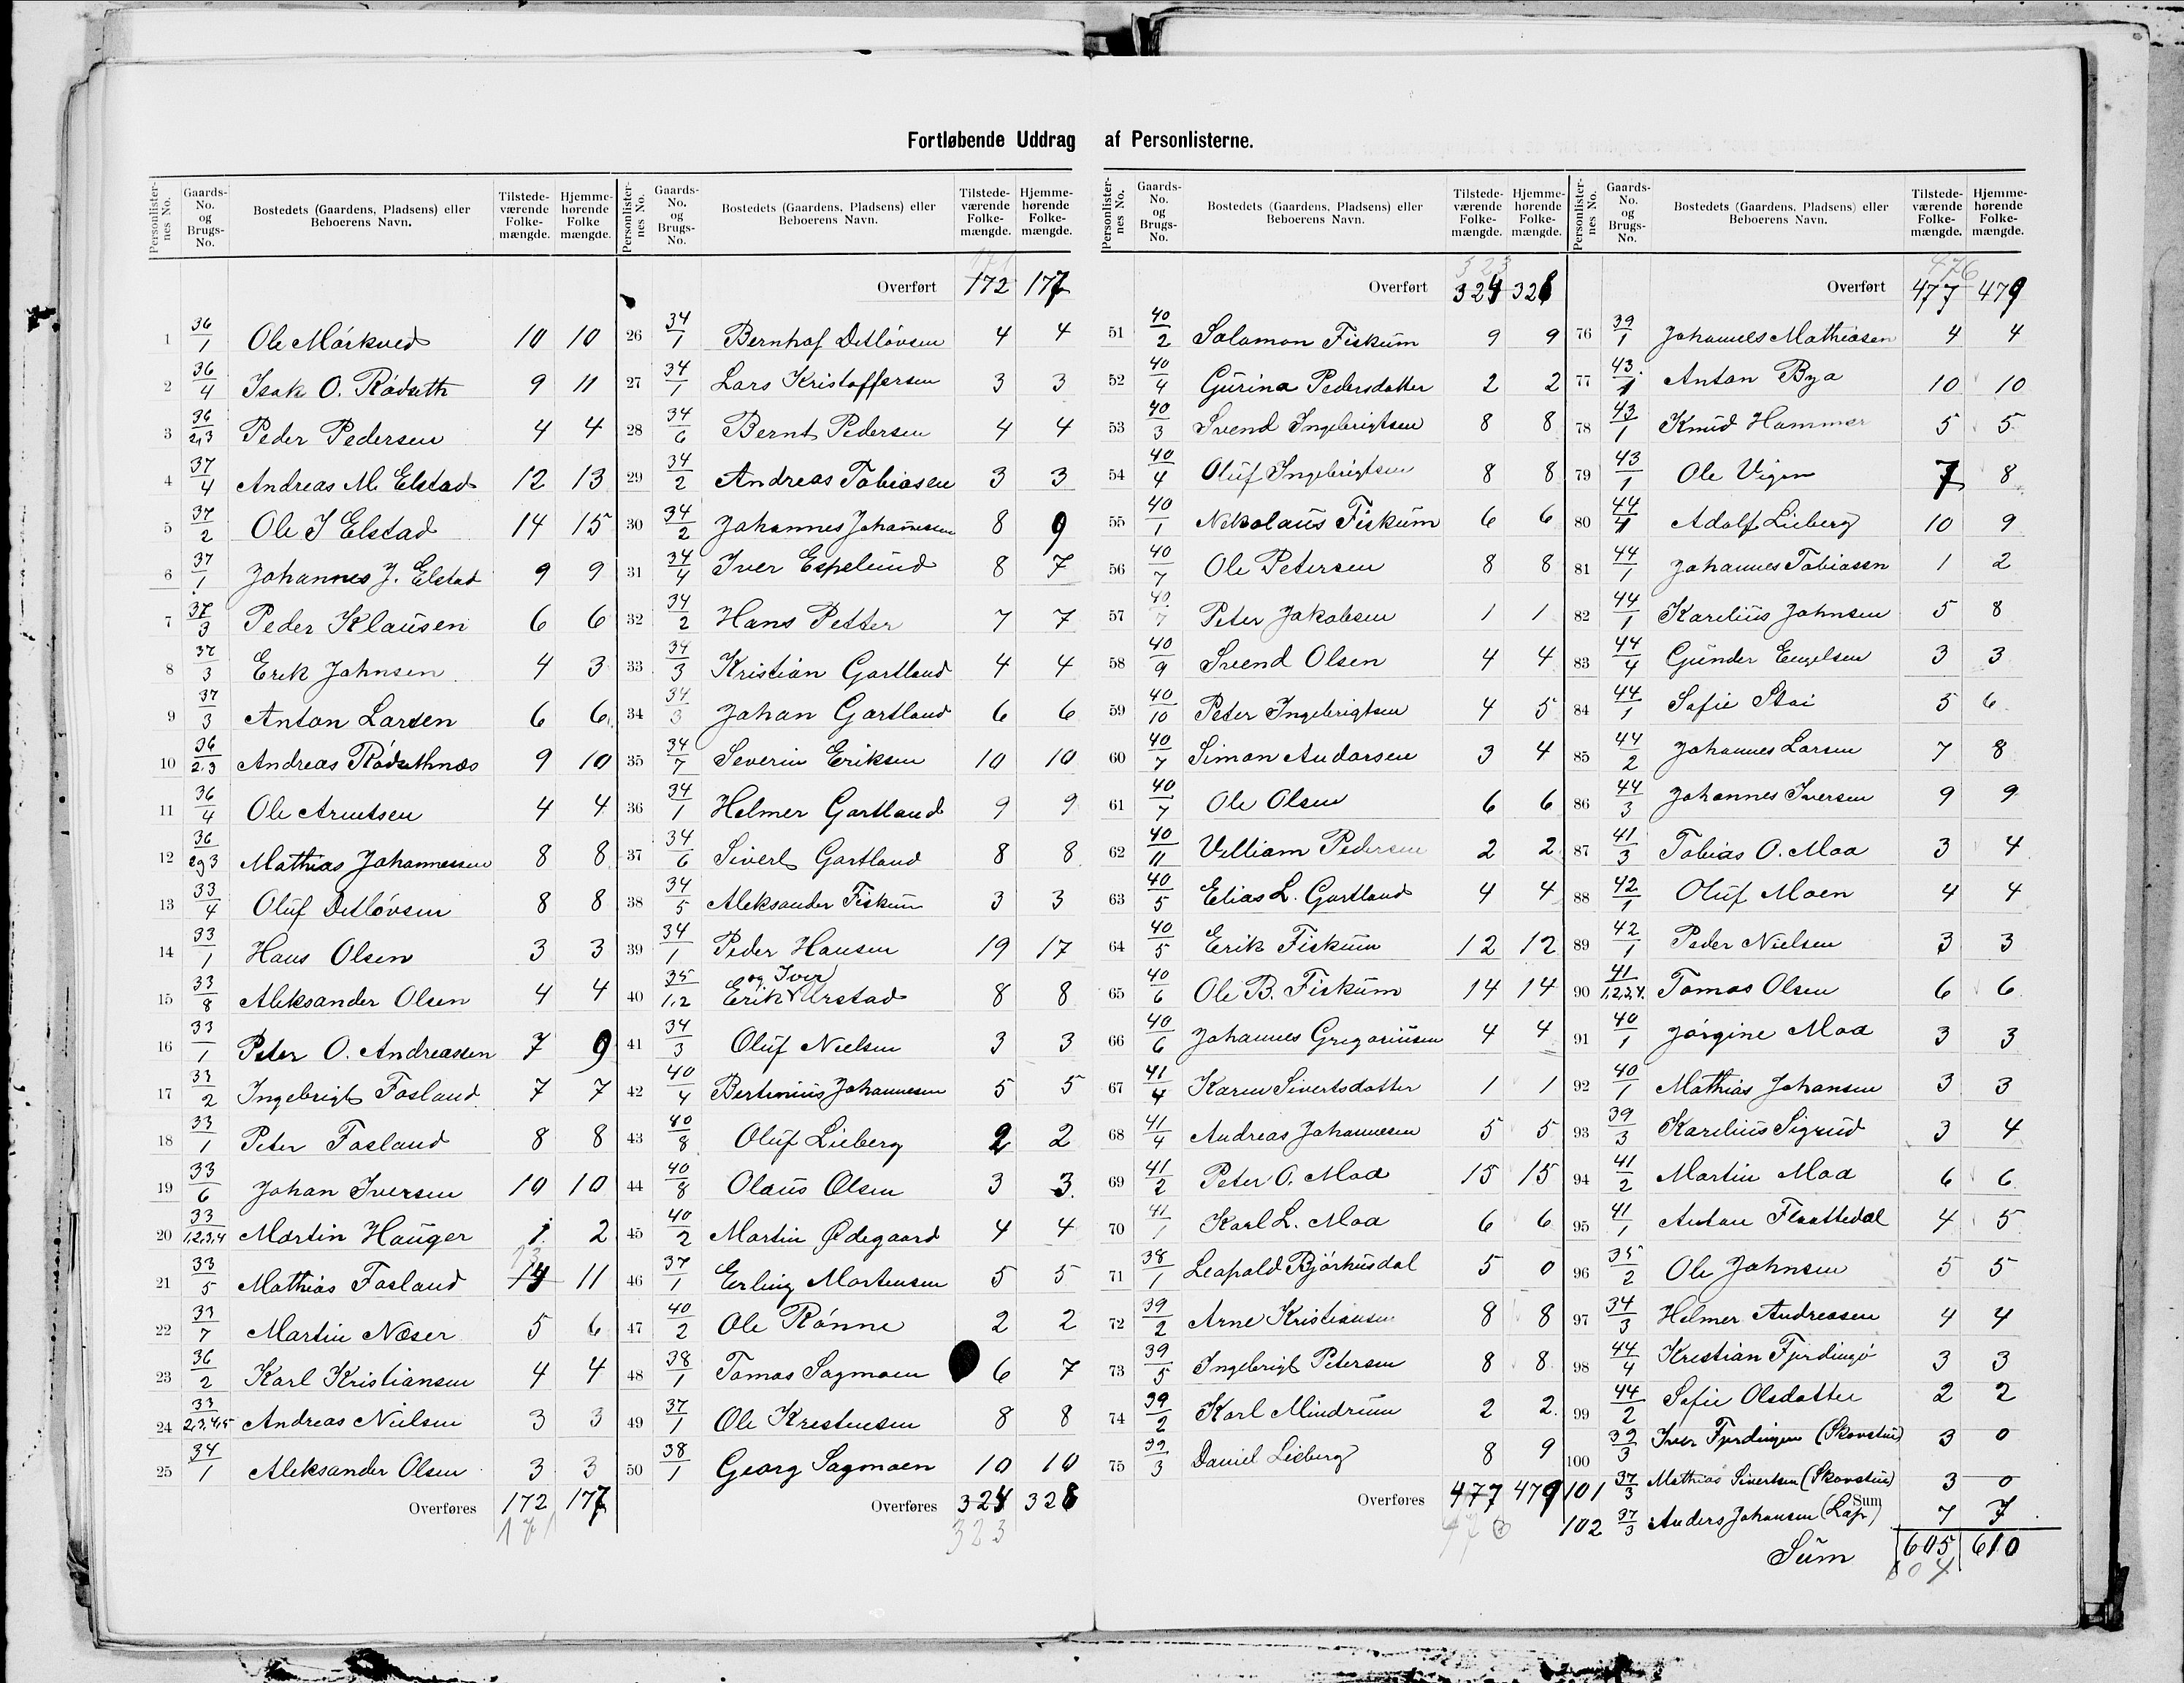 Fortløbende Uddrag af Personlisterne.
Personlister-nes No. Gaards-No. og Brugs-No. Bostedets (Gaardens, Pladsens) eller Beboerens Navn. Tilstede-værende Folke-mængde. Hjemme-hørende Folke mængde.
1 36/1 Ole Mörkved 10 10
2 36/4 Isak O. Rödseth 9 11
3 36/2,3 Peder Pedersen 4 4
4 37/4 Andreas M. Elstad 12 13
5 37/2 Ole J Elstad 14 15
6 37/1 Johannes J. Elstad 9 9
7 37/3 Peder Klausen 6 6
8 37/3 Erik Johnsen 4 3
9 37/3 Anton Larsen 6 6
10 36/2,3 Andreas Rödsethnæs 9 10
11 36/4 Ole Arntsen 4 4
12 36/2og3 Mathias Johannessen 8 8
13 33/4 Oluf Detlövsen 8 8
14 33/1 Hans Olsen 3 3
15 33/8 Aleksander Olsen 4 4
16 33/1 Peter O. Andreassen 7 9
17 33/2 Ingebrigt Fosland 7 7
18 33/1 Peter Fosland 8 8
19 33/6 Johan Iversen 10 10
20 33/1,2,3,4 Martin Hauger 1 2
21 33/5 Mathias Fosland 14 13 11
22 33/7 Martin Næser 5 6
23 36/2 Karl Kristiansen 4 4
24 33/2,3,4,5 Andreas Nielsen 3 3
25 34/1 Aleksander Olsen 3 3
Overføres 172 177
171
Personlister-nes No. Gaards-No. og Brugs-No. Bostedets (Gaardens, Pladsens) eller Beboerens Navn. Tilstede-værende Folke-mængde. Hjemme-hørende Folke-mængde.
171
Overført 172 177
26 34/1 Bernhof Detlövsen 4 4
27 34/1 Lars Kristoffersen 3 3
28 34/6 Bernt Pedersen 4 4
29 34/2 Andreas Tobiasen 3 3
30 34/2 Johannes Johannesen 8 9
31 34/4 Iver Espelund 8 7
32 34/2 Hans Petter 7 7
33 34/3 Kristian Gartland 4 4
34 34/3 Johan Gartland 6 6
35 34/7 Severin Eriksen 10 10
36 34/1 Helmer Gartland 9 9
37 34/6 Sivert Gartland 8 8
38 34/5 Aleksander Fiskum 3 3
39 34/1 Peder Hansen 19 17
40 35/1,2 Erik og Iver Urstad 8 8
41 34/3 Oluf Nielsen 3 3
42 40/4 Bertinius Johannesen 5 5
43 40/8 Oluf Lieberg 2 2
44 40/8 Olaus Olsen 3 3
45 40/2 Martin Ødegaard 4 4
46 37/1 Erling Mortensen 5 5
47 40/2 Ole Rönne 2 2
48 38/1 Tomas Sagmoen 6 7
49 37/1 Ole Kristensen 8 8
50 38/1 Georg Sagmoen 10 10
Overføres 324 328
323
Personlister-nes No. Gaards-No. og Brugs-No. Bostedets (Gaardens, Pladsens) eller Beboerens Navn. Tilstede-værende Folke-mængde. Hjemme-hørende Folke-mængde.
323
Overført 324 328
51 40/2 Salamon Fiskum 9 9
52 40/4 Gurina Pedersdatter 2 2
53 40/3 Svend Ingebrigtsen 8 8
54 40/4 Oluf Ingebrigtsen 8 8
55 40/1 Nekolaus Fiskum 6 6
56 40/7 Ole Petersen 8 8
57 40/7 Peter Jakobsen 1 1
58 40/9 Svend Olsen 4 4
59 40/10 Peter Ingebrigtsen 4 5
60 40/7 Simon Andorsen 3 4
61 40/7 Ole Olsen 6 6
62 40/11 Velliam Pedersen 2 2
63 40/5 Elias L. Gartland 4 4
64 40/5 Erik Fiskum 12 12
65 40/6 Ole B. Fiskum 14 14
66 40/6 Johannes Gregoriusen 4 4
67 41/4 Karen Sivertsdatter 1 1
68 41/4 Andreas Johannesen 5 5
69 41/2 Peter O. Moa 15 15
70 41/1 Karl L. Moa 6 6
71 38/1 Leopold Bjørhusdal 5 0
72 39/2 Arne Kristiansen 8 8
73 39/5 Ingebrigt Petersen 8 8
74 39/2 Karl Mindrum 2 2
75 39/3 Daniel Lieberg 8 9
Overføres 477 479
476
Personlister-nes No. Gaards-No. og Brugs-No. Bostedets (Gaardens, Pladsens) eller Beboerens Navn. Tilstede-værende Folke-mængde. Hjemme-hørende Folke-mængde.
476
Overført 477 479
76 39/1 Johannes Mathiasen 4 4
77 43/1 Anton Bya 10 10
78 43/1 Knud Hammer 5 5
79 43/1 Ole Vigen 7 8
80 44/4 Adolf Lieberg 10 9
81 44/1 Johannes Tobiasen 1 2
82 44/1 Karelius Johnsen 5 8
83 44/4 Gunder Engelsen 3 3
84 44/1 Sofie Stai 5 6
85 44/2 Johannes Larsen 7 8
86 44/3 Johannes Iversen 9 9
87 41/3 Tobias O. Moa 3 4
88 42/1 Oluf Moen 4 4
89 42/1 Peder Nielsen 3 3
90 41/1,2,3,4. Tomas Olsen 6 6
91 40/1 Jörgine Moa 3 3
92 40/1 Mathias Johansen 3 3
93 39/3 Karelius Sigrud 3 4
94 41/2 Martin Moa 6 6
95 41/1 Anton Flaattedal 4 5
96 35/2 Ole Johnsen 5 5
97 34/3 Helmer Andreasen 4 4
98 44/4 Kristian Fjerdingö 3 3
99 44/2 Sofie Olsdatter 2 2
100 39/3 Iver Fjerdingen (Skovstue) 3 0
101 37/3 Mathias Sivertsen (Skovstue) 3 0
Sum
102 37/3 Anders Johansen (Lap) 7 7
Sum 605 610
604